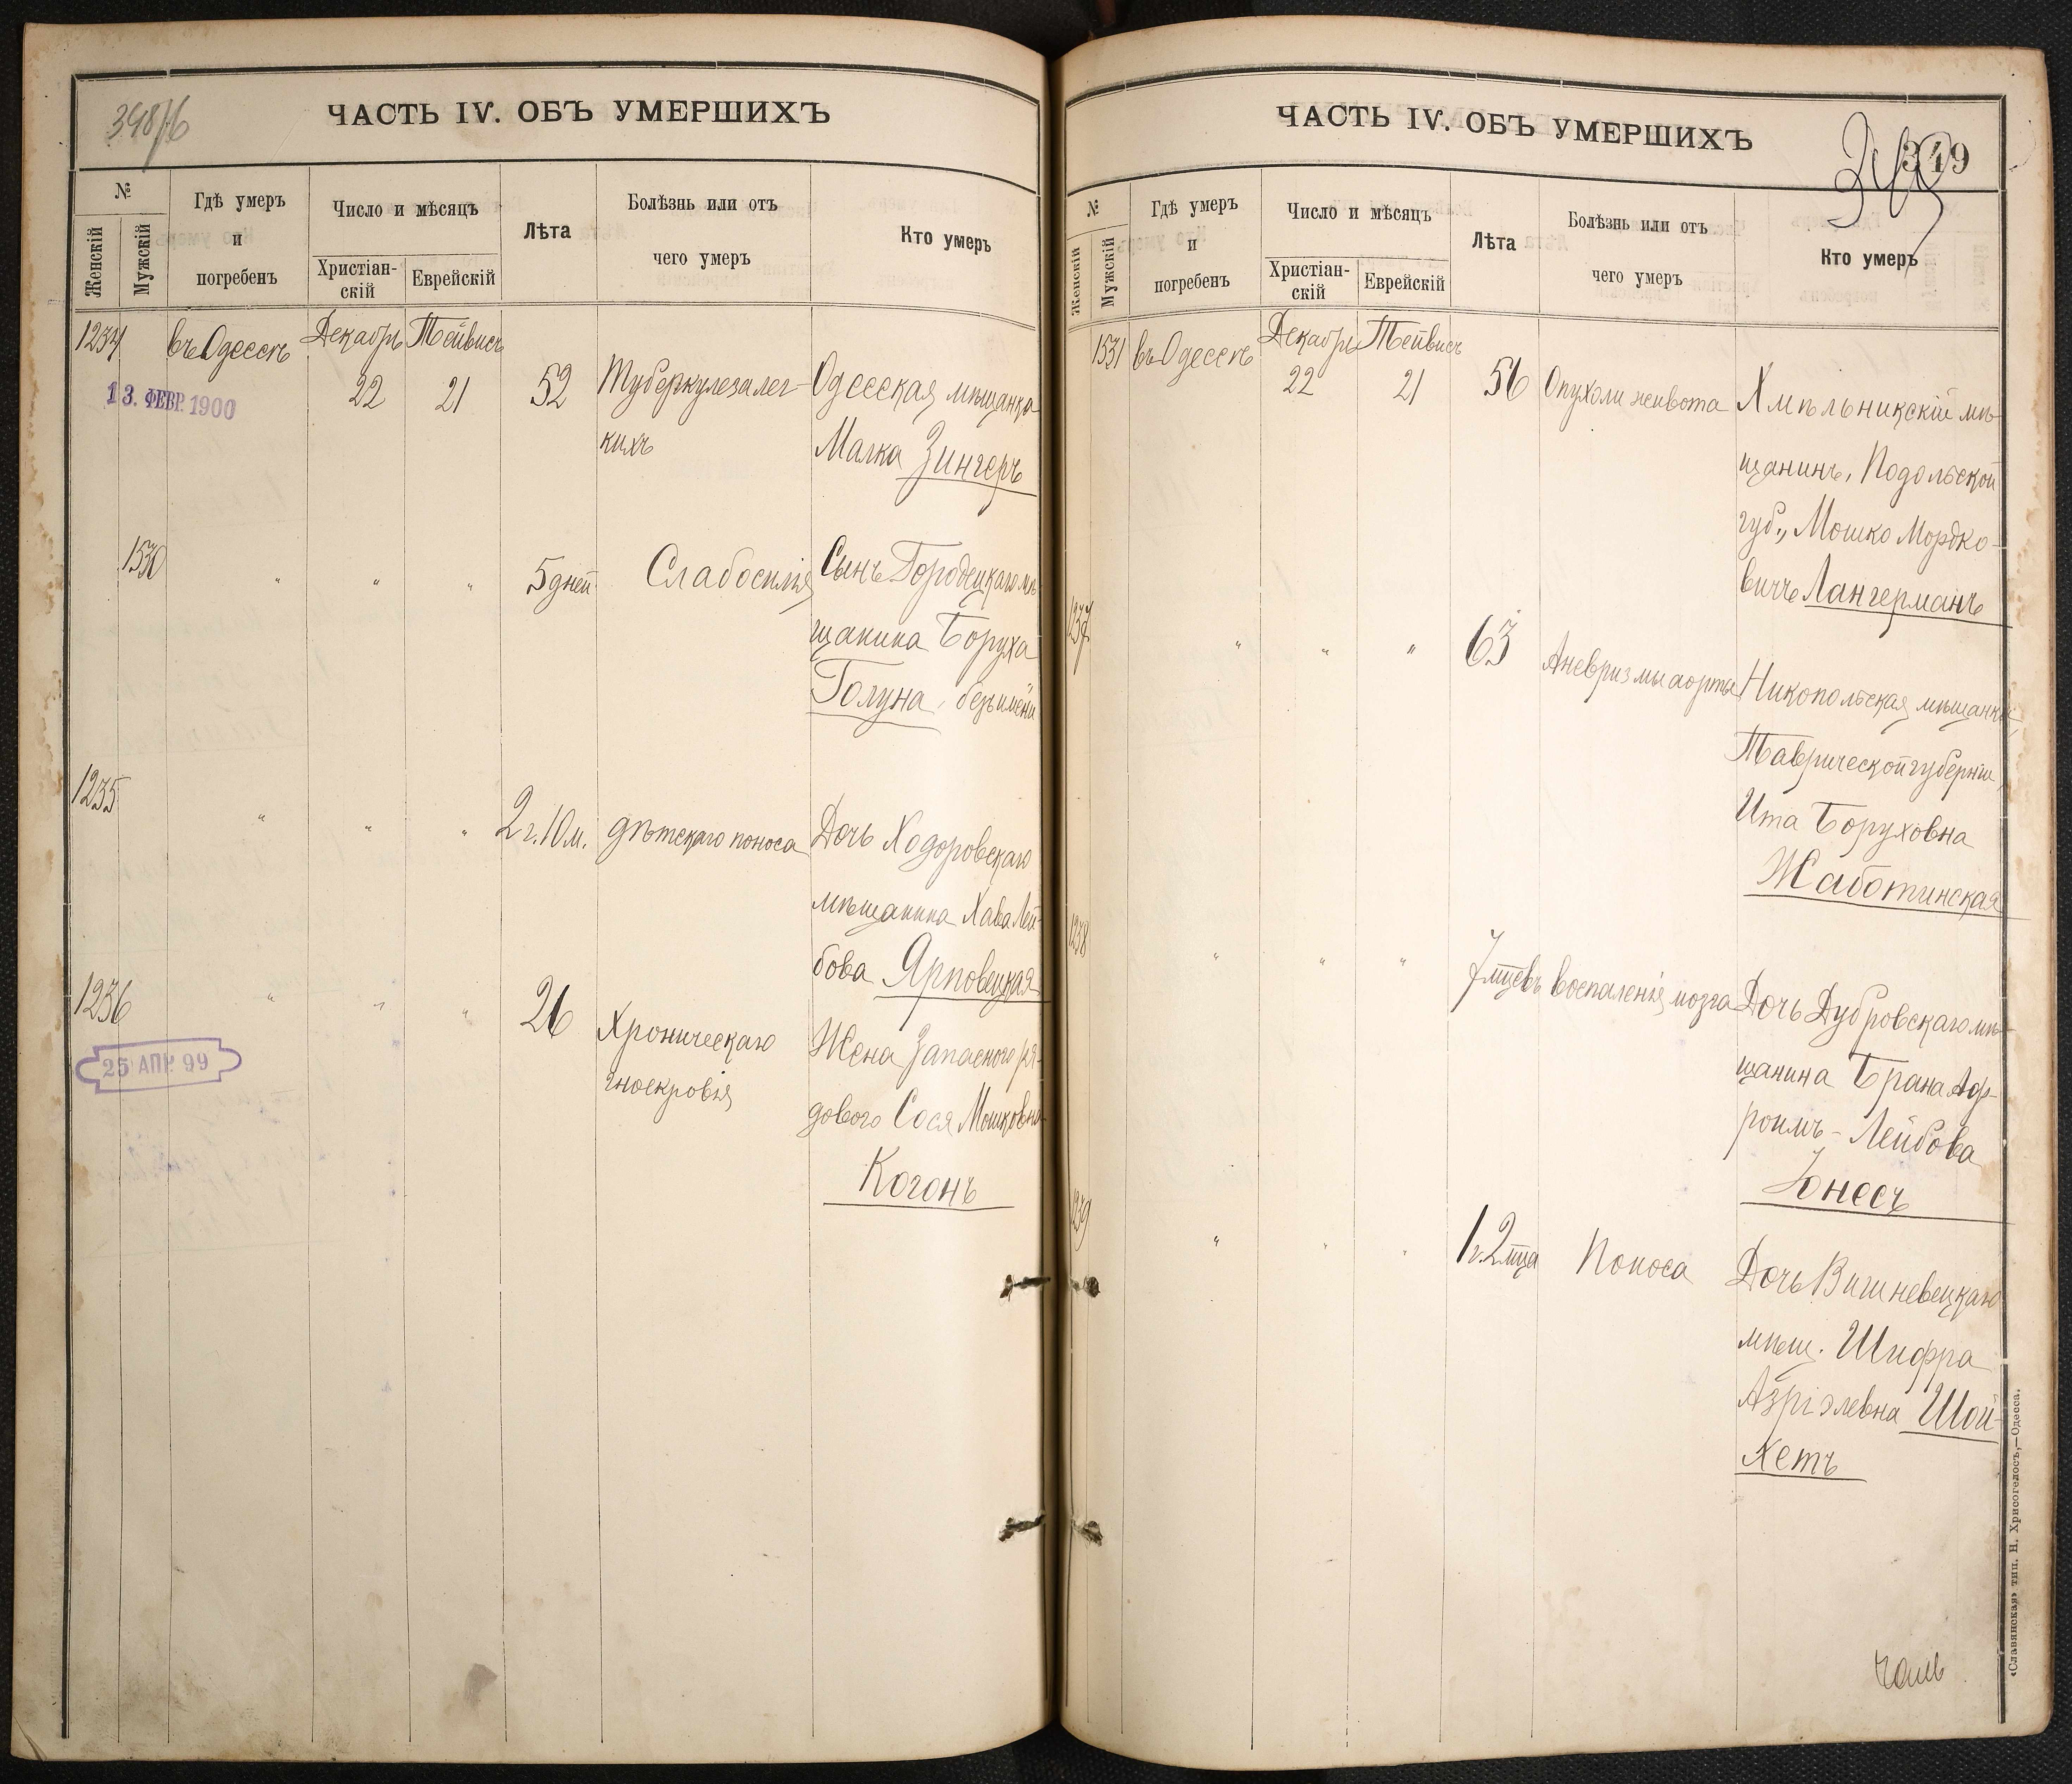 ЧАСТЬ IV. ОБЪ УМЕРШИХЪ
№
Женскій
Мужскій
Гдѣ умеръ
и
погребенъ
Число и мѣсяцъ
Христіан-
скій
Еврейскій
Лѣта
Болѣзнь или отъ
чего умеръ
Кто умеръ
1234 въ Одессѣ Декабрь Тейвисъ
13. ФЕВР. 1900
22 21 52 Туберкулеза лег- Одесская мѣщанка
кихъ Малка Зингеръ
1530 " " " 5 дней Слабосилія Сынъ Городецкаго мѣ-
щанина Боруха
Голуна, безъ имени
1235 " " " 2 г. 10 м. дѣтскаго поноса Дочь Ходоровскаго
мѣщанина Хава Лей-
бова Ярповецкая
1236 " " " 26 Хроническаго Жена Запасного ря-
гноекровія дового Сося Мошковна
25 АПР. 99
Когонъ
ЧАСТЬ IV. ОБЪ УМЕРШИХЪ
349
№
Женскій
Мужскій
Гдѣ умеръ
и
погребенъ
Число и мѣсяцъ
Христіан-
скій
Еврейскій
Лѣта
Болѣзнь или отъ
чего умеръ
Кто умеръ
1531 въ Одессѣ Декабрь Тейвисъ
22 21 56 Опухоли живота Хмѣльникскій мѣ-
щанинъ, Подольской
губ., Мошко Мордко-
вичъ Лангерманъ
1237 " " " 63 Аневризмы аорты Никопольская мѣщанка,
Таврической губерніи,
Ита Боруховна
Жаботинская
1238 " " " 7 мцевъ воспаленія мозга Дочь Дубровскаго мѣ-
щанина Брана
роимъ-Лейбова
Юнесъ
1239 " " " 1 г. 2 мца Поноса Дочь Вишневецкаго
мѣщ. Шифра
Азріэлевна Шой-
хетъ
«Славянская» тип. Н. Хрисогелосъ,—Одесса.